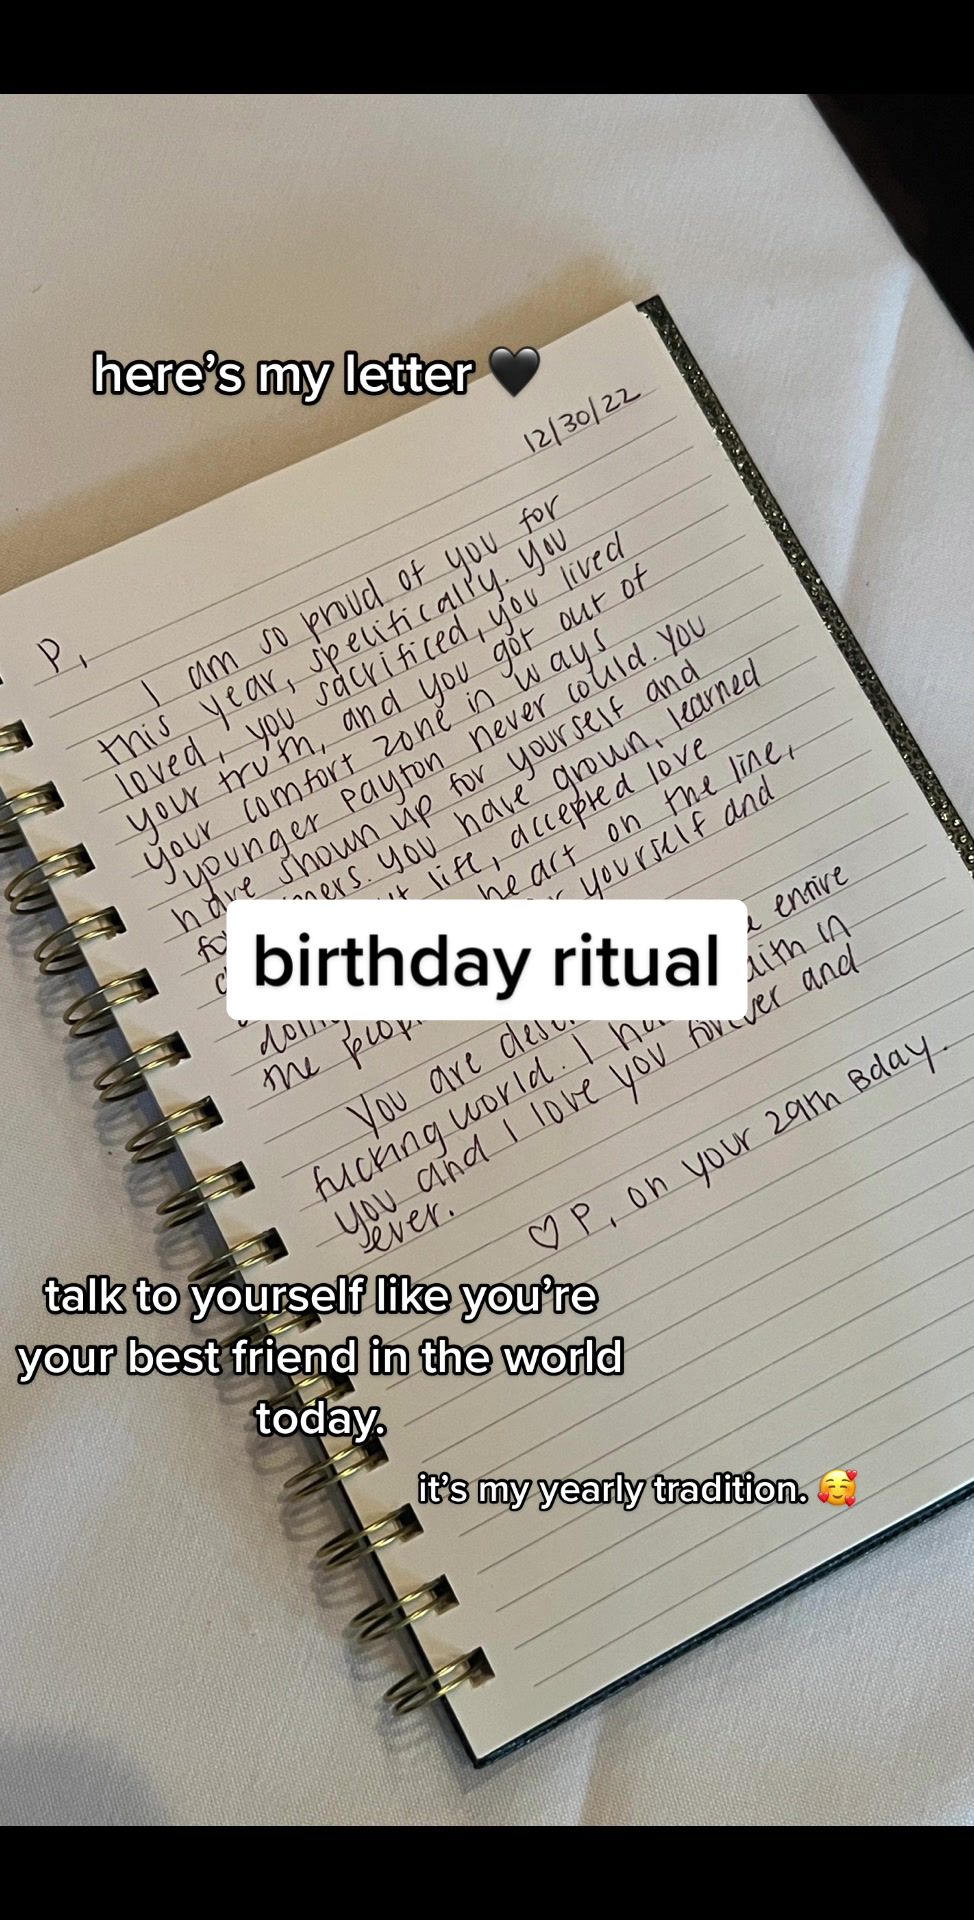 here's my letter 🖤
12/30/22
P,
I am so proud of you for
this year, specifically. You
loved, you sacrificed, you lived
your truth, and you got out of
your comfort zone in ways
younger Payton never could. You
have shown up for yourself and
for. You have grown, learned
life, accepted love
heart on the line,
yourself and
birthday ritual
the
entire
You are
faith in
fucking world. I
you and I love you forever and
ever.
♡ P, on your 29th Bday.
talk to yourself like you're
your best friend in the world
today.
it's my yearly tradition. 🥰